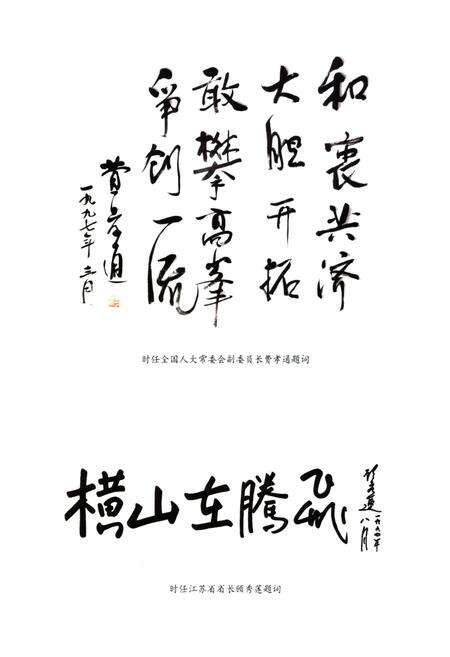 和衷共济
大胆开拓
敢攀高峯
争创一流
费孝通
一九九七年三月
时任全国人大常委会副委员长费孝通题词
横山在腾飞
顾秀莲
一九八四年
八月
时任江苏省省长顾秀莲题词